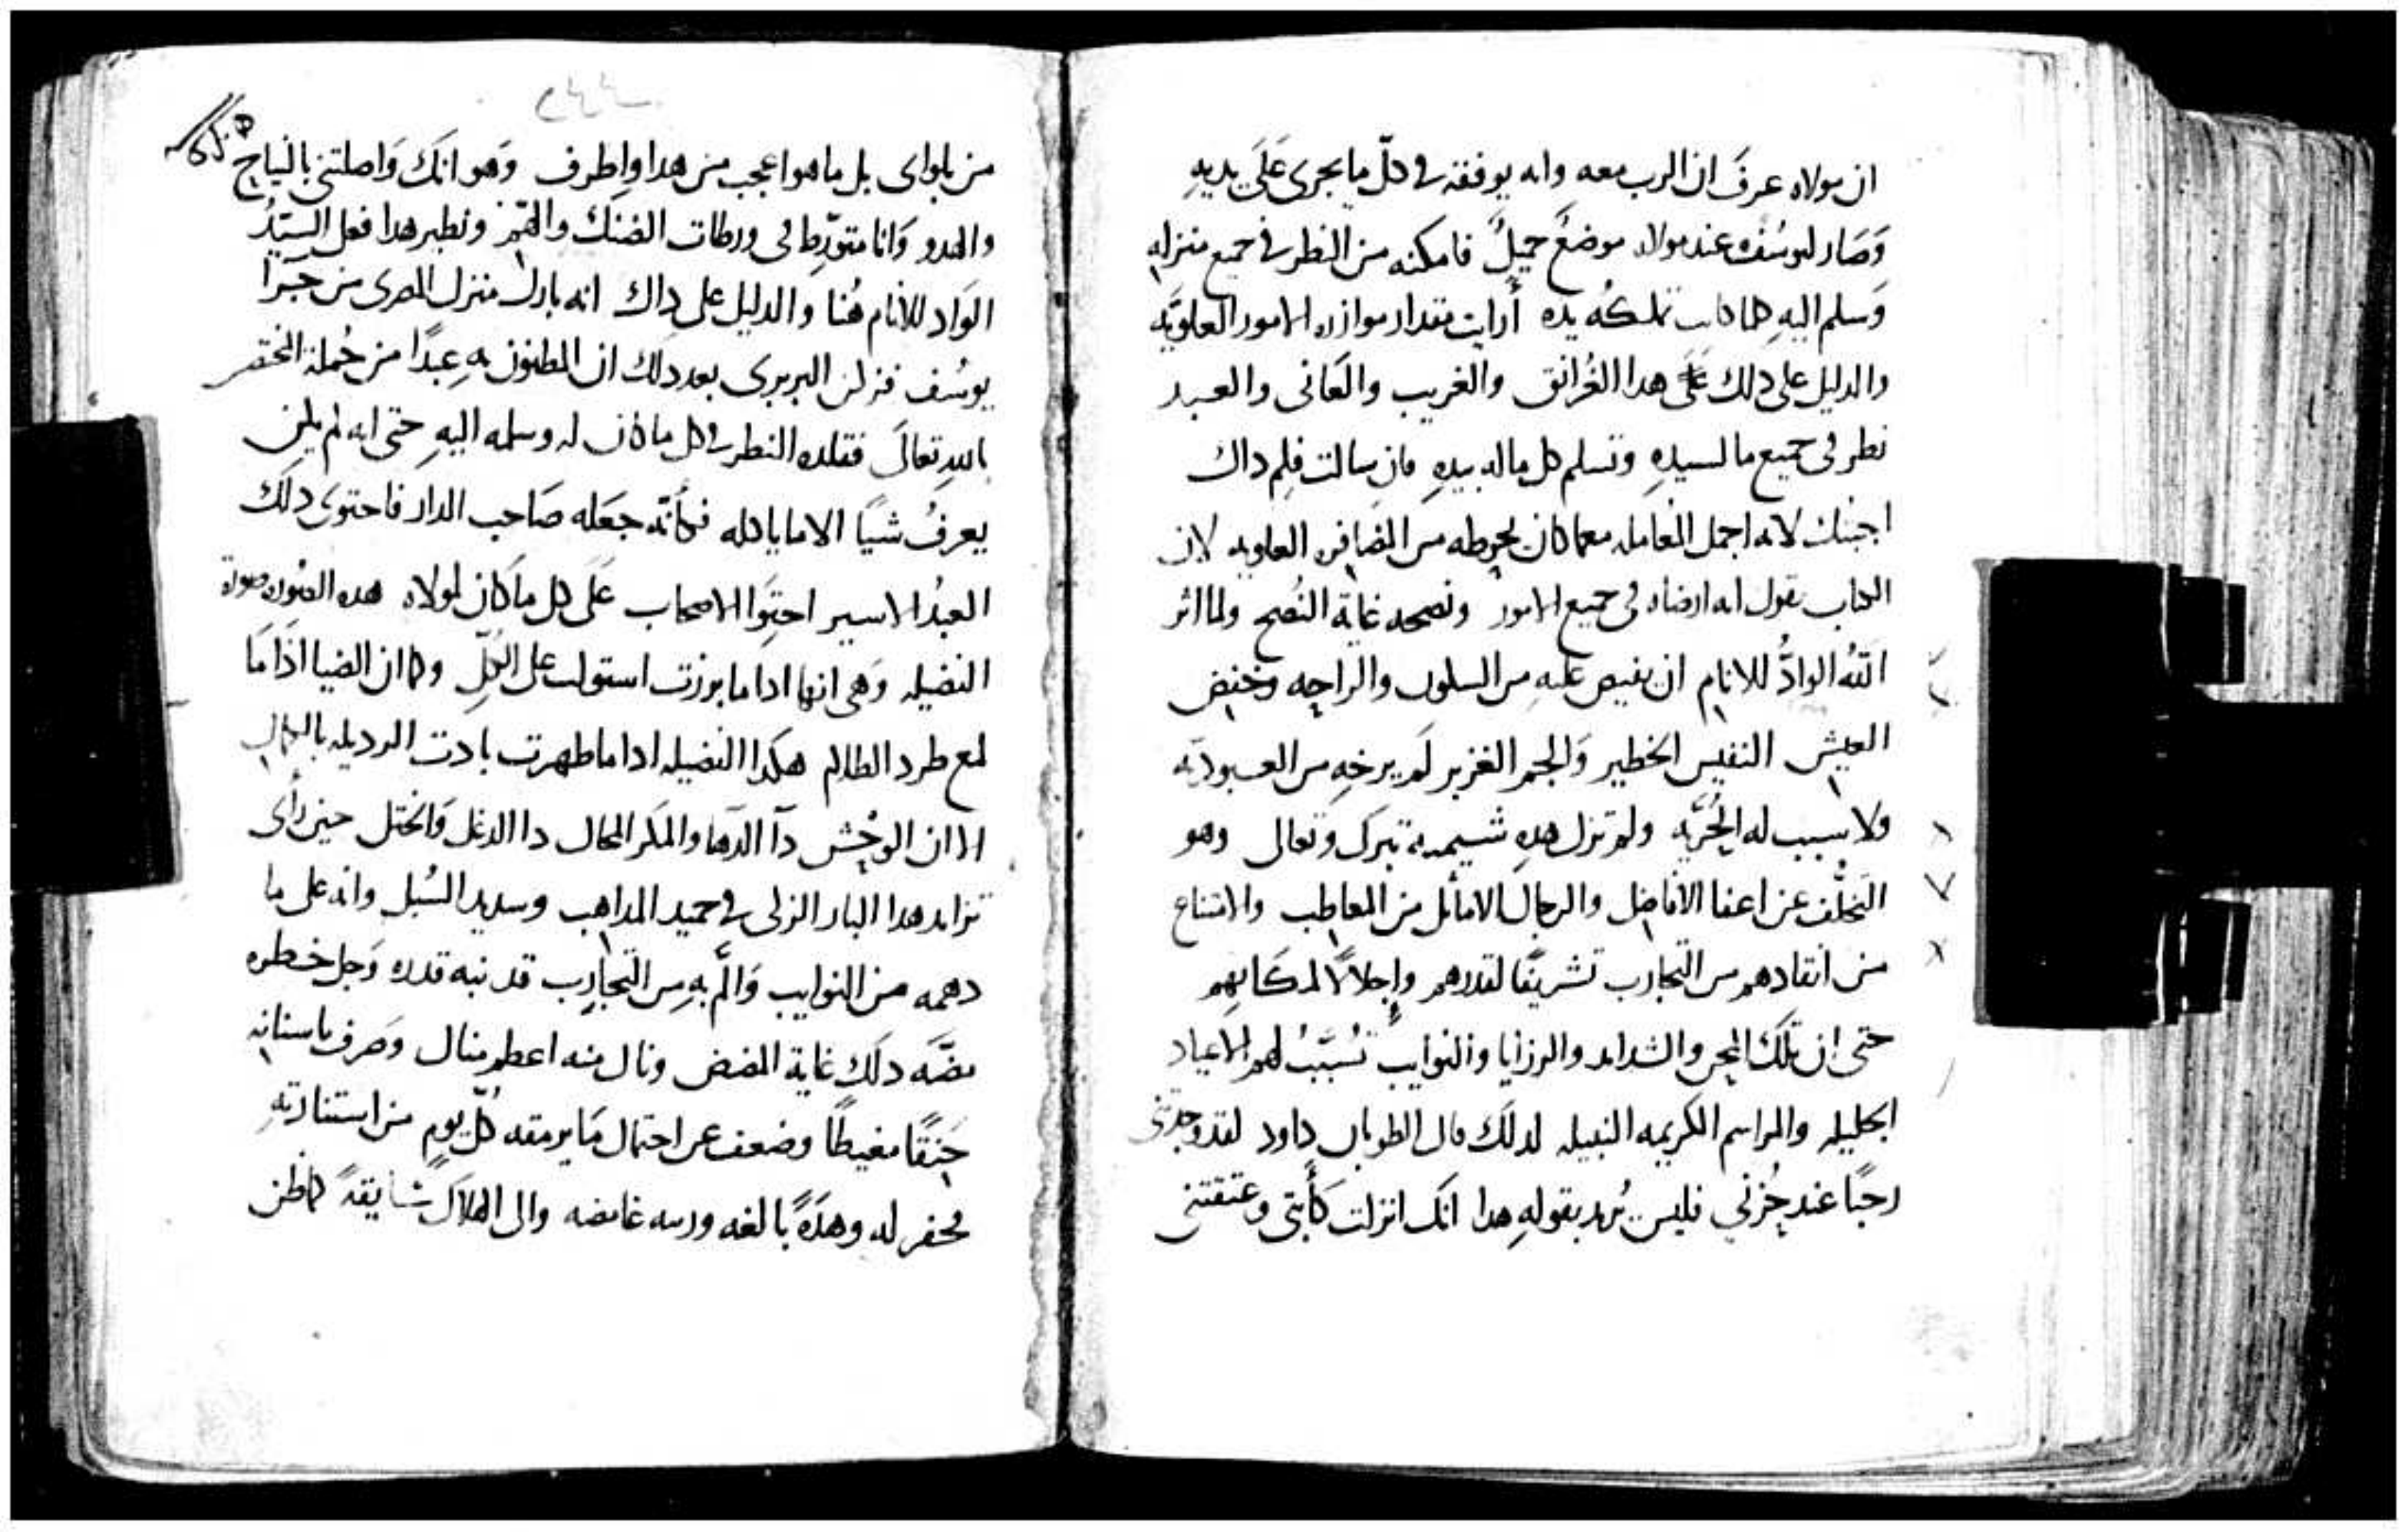 ان مولاه عرفَ ان الرب معه وانه يوفقه فى كلّ ما يجرى عَلَى يديهِ
وَصَار ليوسُف عند مولاه موضعٌ جميلٌ فامكنه من النظر فى جميع منزله
وَسلم اليهِ كلما كانت تملكُه يده أرايت مقدار موازره الامور العلويَّه
والدليل على دلك عَلَى هدا الغُرانق والغريب والعَانى والعبد
نظر فى جميع ما لسيدهِ وتسلم كل ماله بيدهِ فان سالت فلِم داك
اجبتك لانه اجمل المعامله معما كان يحوطه من المضافره العلويه لان
الكتاب يقول انه ارضاه فى جميع الامور ونصحه غاية النُصح ولما اثر
اللهُ الوادُّ للانام ان يفيض عليهِ من السلون والراحه وخفض
العيش النفيس الخطير وَالجم الغزير لَم يرخهِ من العبوديّه
وَلا سبب له الحُريَّه ولم تزل هدهِ شيمته تبرك وتعالى وهو
التخلُّف عن اعفا الافاضل والرجال الاماثل من المعاطب والامتناع
من انقادهم من التجارب تشريفًا لقدرهم وإجلالاً لمكَانِهم
حتى ان تلكَ المحن والشدايد والرزايا والنوايب تُسَبّبُ لهم الاعياد
الجليله والمراسم الكريمه النبيله لدلكَ قال الطوبان داود لقد وجدتنى
رحبًا عند حُزنى فليس يُريد بقولهِ هدا انكَ انزلتَ كَأبتى وعتقتنى
من بلواى بل ما هوا عجب من هدا واطرف وَهو انكَ وَاصلتنى بالنياح
والهدو وَانا متورّط فى ورطات الضنك والهمّ ونظير هدا فعل السيّدُ
الوَاد للانام هُنا والدليل على داك انه بارك منزل المصرى من جَرَا
يوسُف فزكن البربرى بعد دلك ان المظنون بهِ عبدًا من جُملة المختصر
باللهِ تعالَى فقلده النظر فى كل ما كان له وسلمه اليهِ حتى انه لم يكن
يعرفُ شيًا الا ما ياكله فكأنّه جعَله صَاحب الدار فاحتوى دلكَ
العبدُ الاسير احتِوَا الاصحاب عَلَى كل ما كَان لمولاه هده الصوره صورة
الفضيله وَهى انها ادا ما برزت استولت على الكُلّ وكما ان الضيا اذَا مَا
لمع طرد الظلام هكدا الفضيله ادا ما ظهرت بادت الرديله بالكمال
الا ان الوحْش دآ الدَها والمكر المحال دا الدغل وَالختل حين رأى
تزايد هدا البار الزكى فى حميد المداهب وسديد السُبل وانه على ما
دهمه من النوايب وَالمَّ بهِ من التجارِب قد نبه قدره وَجل خطره
مضَّهَ دلكَ غاية المضض ونال منه اعظم منال وَصرف باسنانه
حنَقًا مغيظًا وضعف عن احتمال مَا يرمقه كلّ يومٍ من استنارتهِ
فحفر له وهدَةً بالغه ورسه غامضه والى الهلاك شايقةً كما ظن